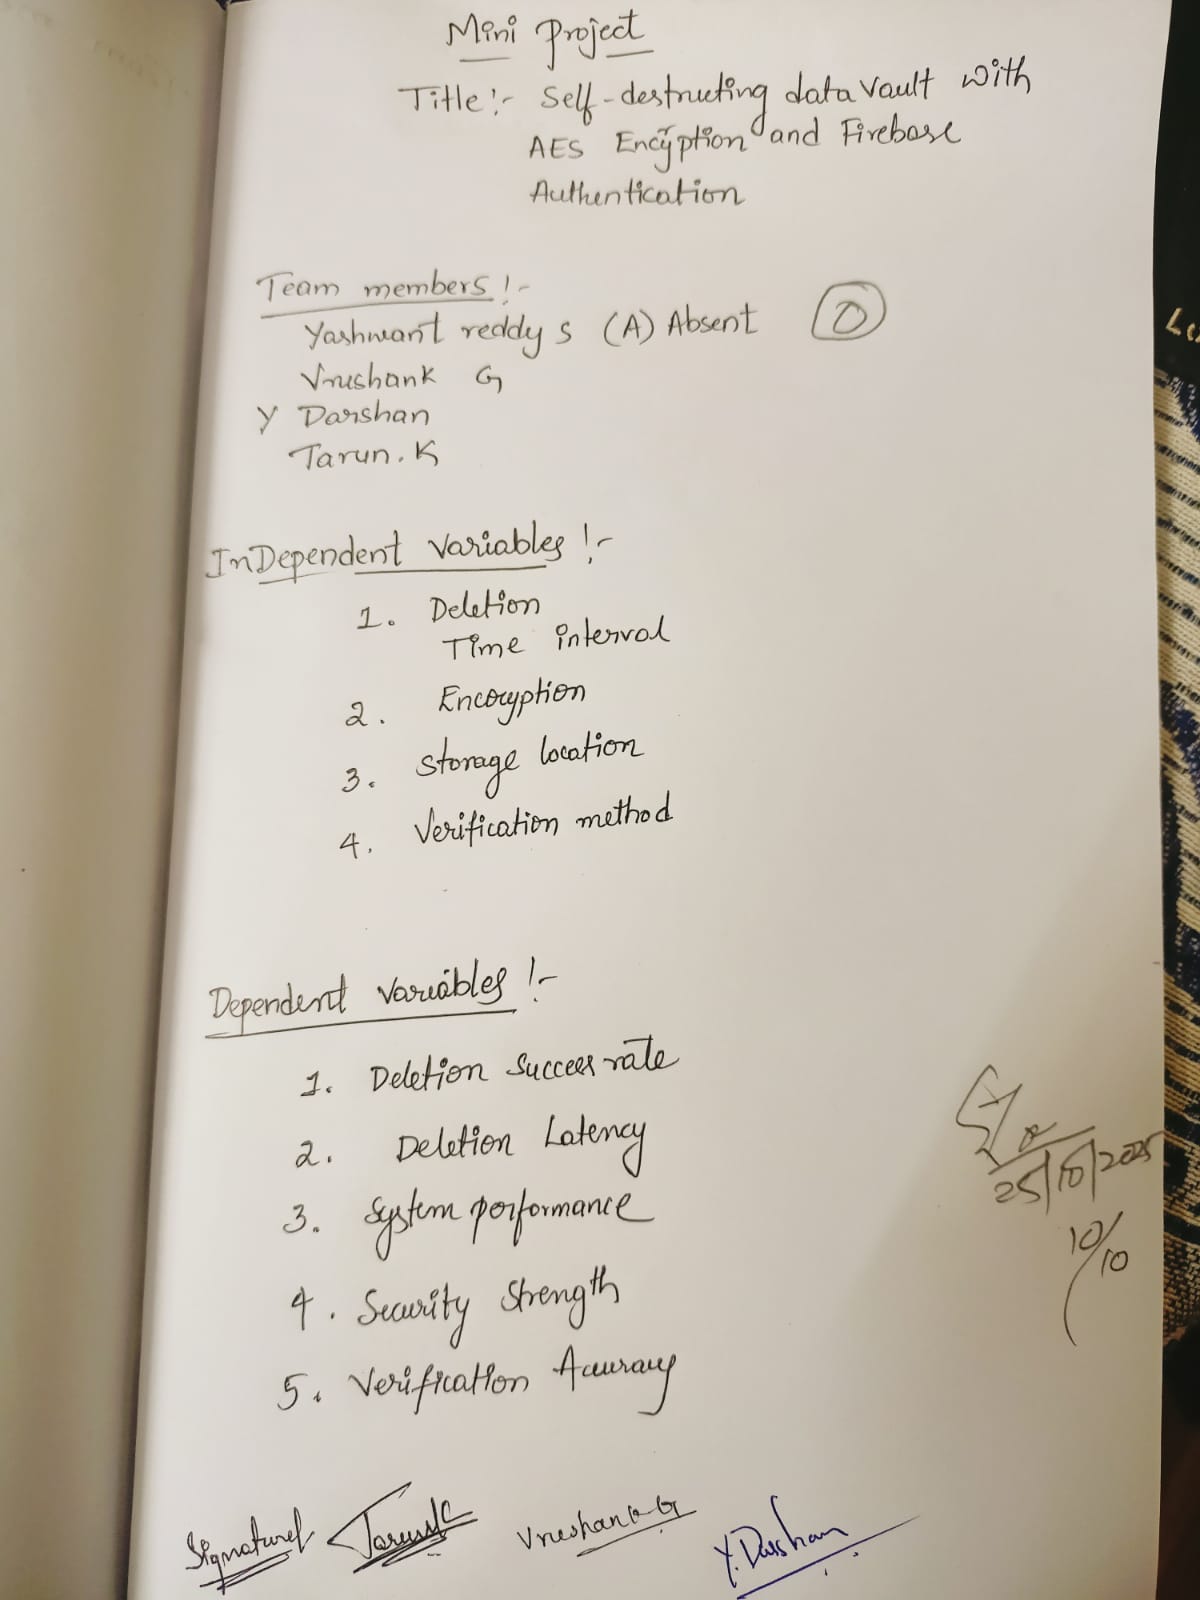 Mini Project
Title:- Self-destructing data vault with
AES Encryption and Firebase
Authentication
Team members:-
Yashwant reddy s (A) Absent 0
Vrushank G
Y Darshan
Tarun.K
InDependent Variables:-
1. Deletion
Time interval
2. Encryption
3. Storage location
4. Verification method
Dependent Variables:-
1. Deletion Success rate
2. Deletion Latency
3. System performance
4. Security Strength
5. Verification Accuracy
25/10/2025
10/10
Signature Tarun.K Vrushank G Y.Darshan